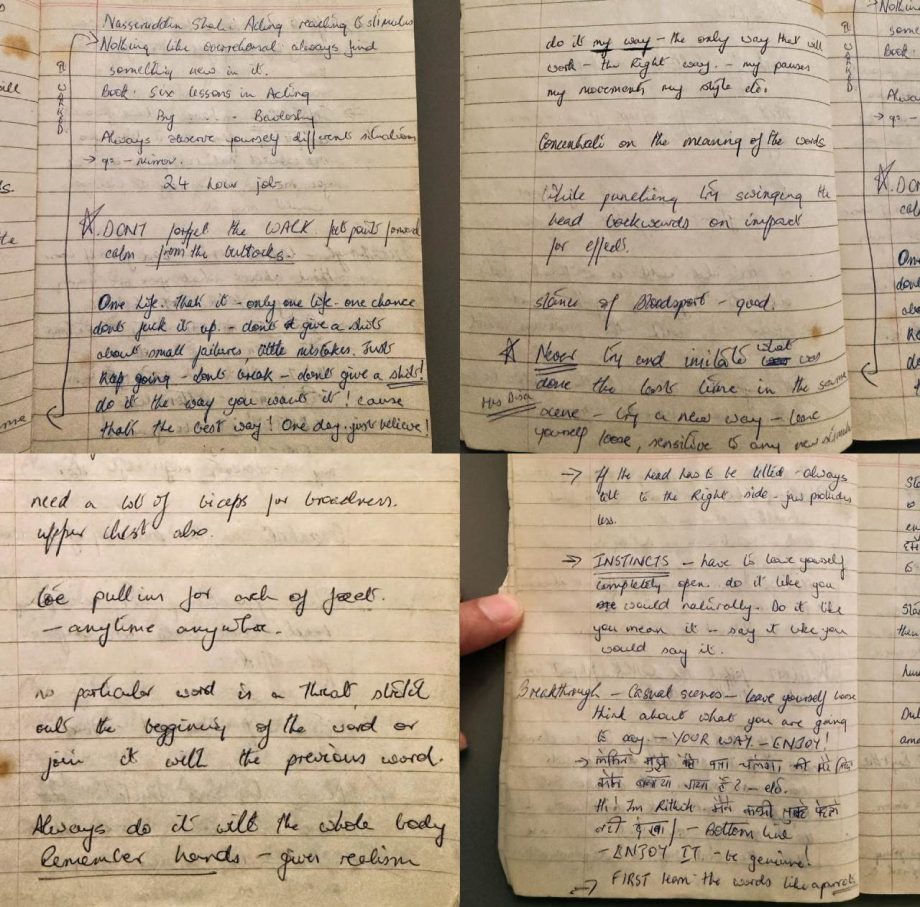 Nasseruddin Shah: Acting reacting to stimulus
Nothing like overrehersal always find
something new in it.
Book: Six lessons in Acting
By .....
Always observe yourself different situations
→ - mirror.
24 hour jobs
IT WORKED
DONT forget the WALK feet point forward
calm from the buttocks.
One Life. that it - only one life - one chance
dont fuck it up. - dont give a shits
about small failures little mistakes. Just
Kep going - dont break - dont give a shits!
do it the way you want it! cause
thats the best way! One day. just believe!
do it my way - the only way that will
work - the Right way. - my pauses
my movements my style etc.
Concentrate on the meaning of the words
While punching try swinging the
head backwards on impact
for effects.
stance of Bloodsport - good.
Never try and imitate what was
done the last time in the same
scene - try a new way - leave
yourself loose, sensitive to any new
need a lot of biceps for broadness.
upper chest also.
toe pull ins for arch of feet.
- anytime anywhere.
no particular word is a threat stretch
out the beggining of the word or
join it with the previous word.
Always do it with the whole body
Remember hands - gives realism
→ If the head has to be tilted - always
tilt to the Right side - jaw protudes
less.
→ INSTINCTS - have to leave yourself
completely open. do it like you
would naturally. Do it like
you mean it - say it like you
would say it.
Breakthrough - Casual scenes - leave yourself loose
think about what you are going
to say. - YOUR WAY - ENJOY!
→ लेकिन मुझे कैसे पता चलेगा की मेरे लिए
कौन बनाया गया है? - etc.
Hi! Im Rithik. मैने कभी तुम्हे पेहले
नही देखा - Bottom line
- ENJOY IT. - be genuine!
→ FIRST learn the words like a parrot